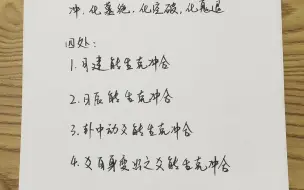 冲,化墓绝,化空破,化鬼退
四处:
1.月建能生克冲合
2.日辰能生克冲合
3.卦中动爻能生克冲合
4.爻自身变出之爻能生克冲合